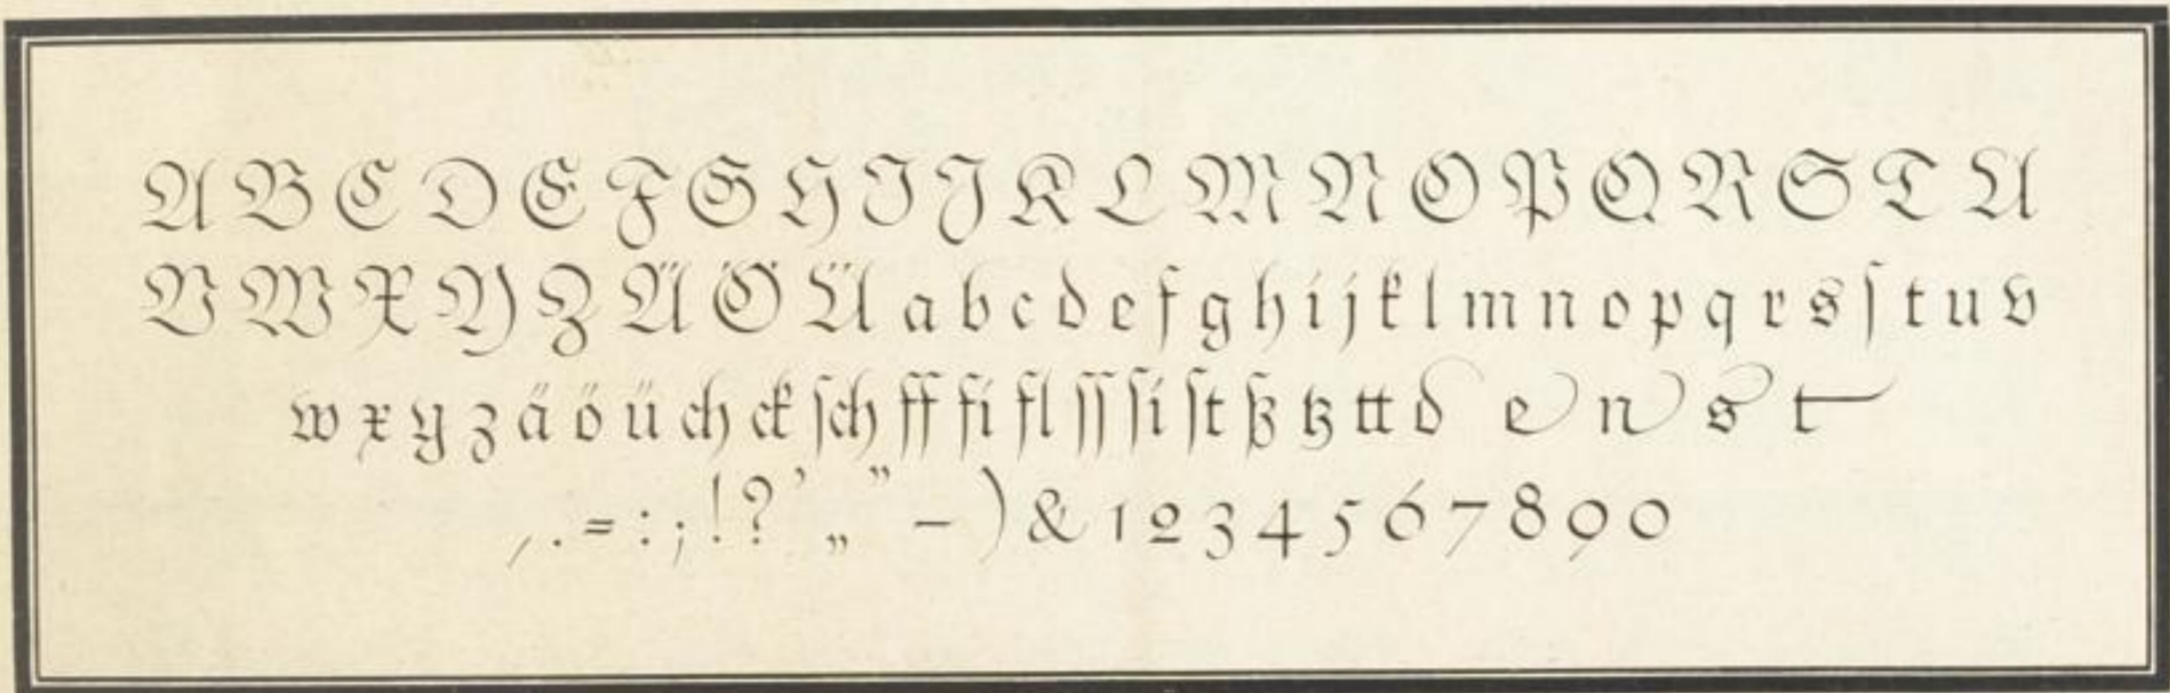 A B C D E F G H I J K L M N O P Q R S T U
V W X Y Z Ä Ö Ü a b c d e f g h i j k l m n o p q r s ſ t u v
w x y z ä ö ü ch ck ſch ff fi fl ſſ ſi ſt ß tz tt d e n s t
, . = : ; ! ? ’ „ ” – ) & 1 2 3 4 5 6 7 8 9 0